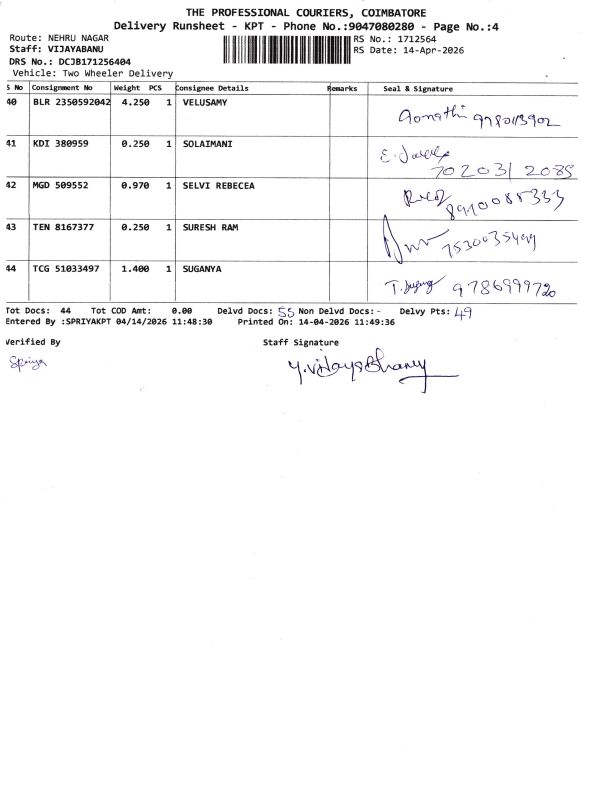 THE PROFESSIONAL COURIERS, COIMBATORE
Delivery Runsheet - KPT - Phone No.:9047080280 - Page No.:4
Route: NEHRU NAGAR
RS No.: 1712564
Staff: VIJAYABANU
RS Date: 14-Apr-2026
DRS No.: DCJB171256404
Vehicle: Two Wheeler Delivery
S No Consignment No Weight PCS Consignee Details Remarks Seal & Signature
40 BLR 2350592042 4.250 1 VELUSAMY
Gomathi
41 KDI 380959 0.250 1 SOLAIMANI
702031 2085
42 MGD 509552 0.970 1 SELVI REBECEA
8940085333
43 TEN 8167377 0.250 1 SURESH RAM
7530035499
44 TCG 51033497 1.400 1 SUGANYA
9786999720
Tot Docs: 44 Tot COD Amt: 0.00 Delvd Docs: 55 Non Delvd Docs:- Delvy Pts: 49
Entered By :SPRIYAKPT 04/14/2026 11:48:30 Printed On: 14-04-2026 11:49:36
Verified By Staff Signature
Spriya Y.VijayaBhanu